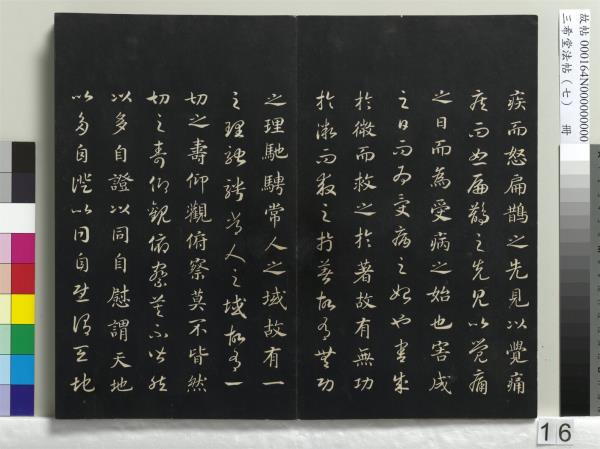 故帖 000164N000000000
三希堂法帖（七） 冊
疾而怒扁鵲之先見以覺痛
疾而怒扁鵲之先見以覺痛
之日而為受病之始也害成
之日而為受病之始也害成
於微而救之於著故有無功
於微而救之於著故有無功
之理馳騁常人之域故有一
之理馳騁常人之域故有一
切之壽仰觀俯察莫不皆然
切之壽仰觀俯察莫不皆然
以多自證以同自慰謂天地
以多自證以同自慰謂天地
16